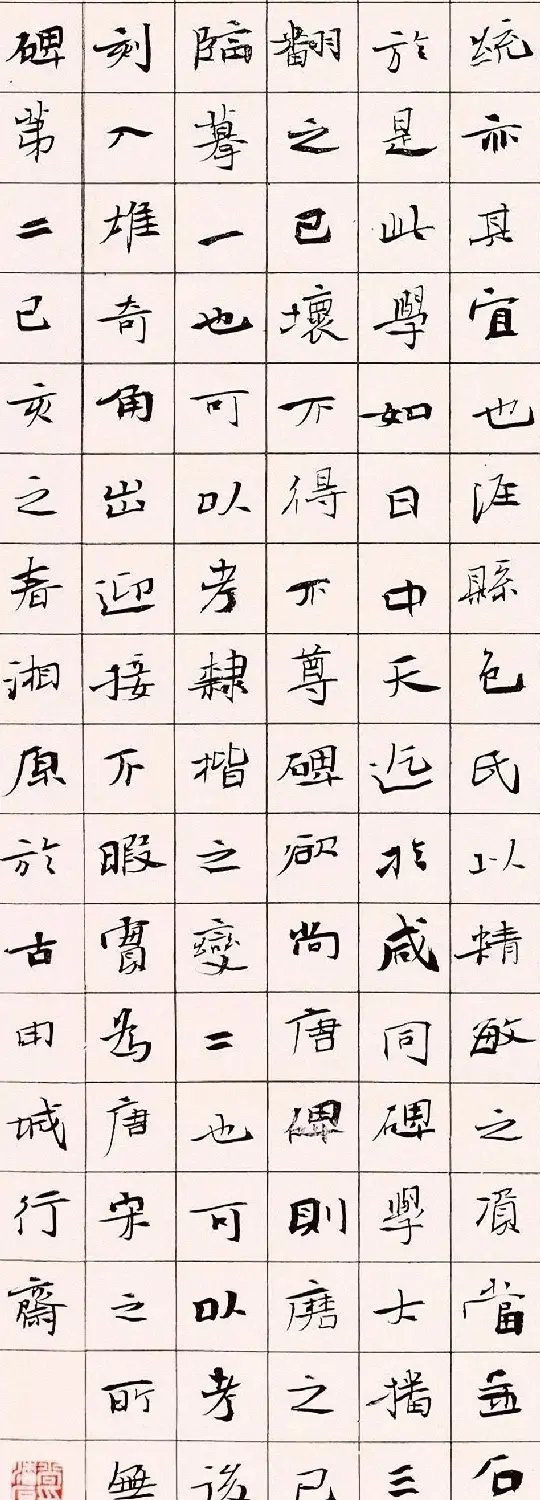 統亦其宜也涇縣包氏以精敏之資當金石
於是此學如日中天迄於咸同碑學大播三
翻之已壞不得不尊碑欲尚唐碑則磨之已
臨摹一也可以考隸楷之變二也可以考後
刻入雄奇角出迎接不暇實為唐宋之所無
碑第二己亥之春湘原於古由城行齋